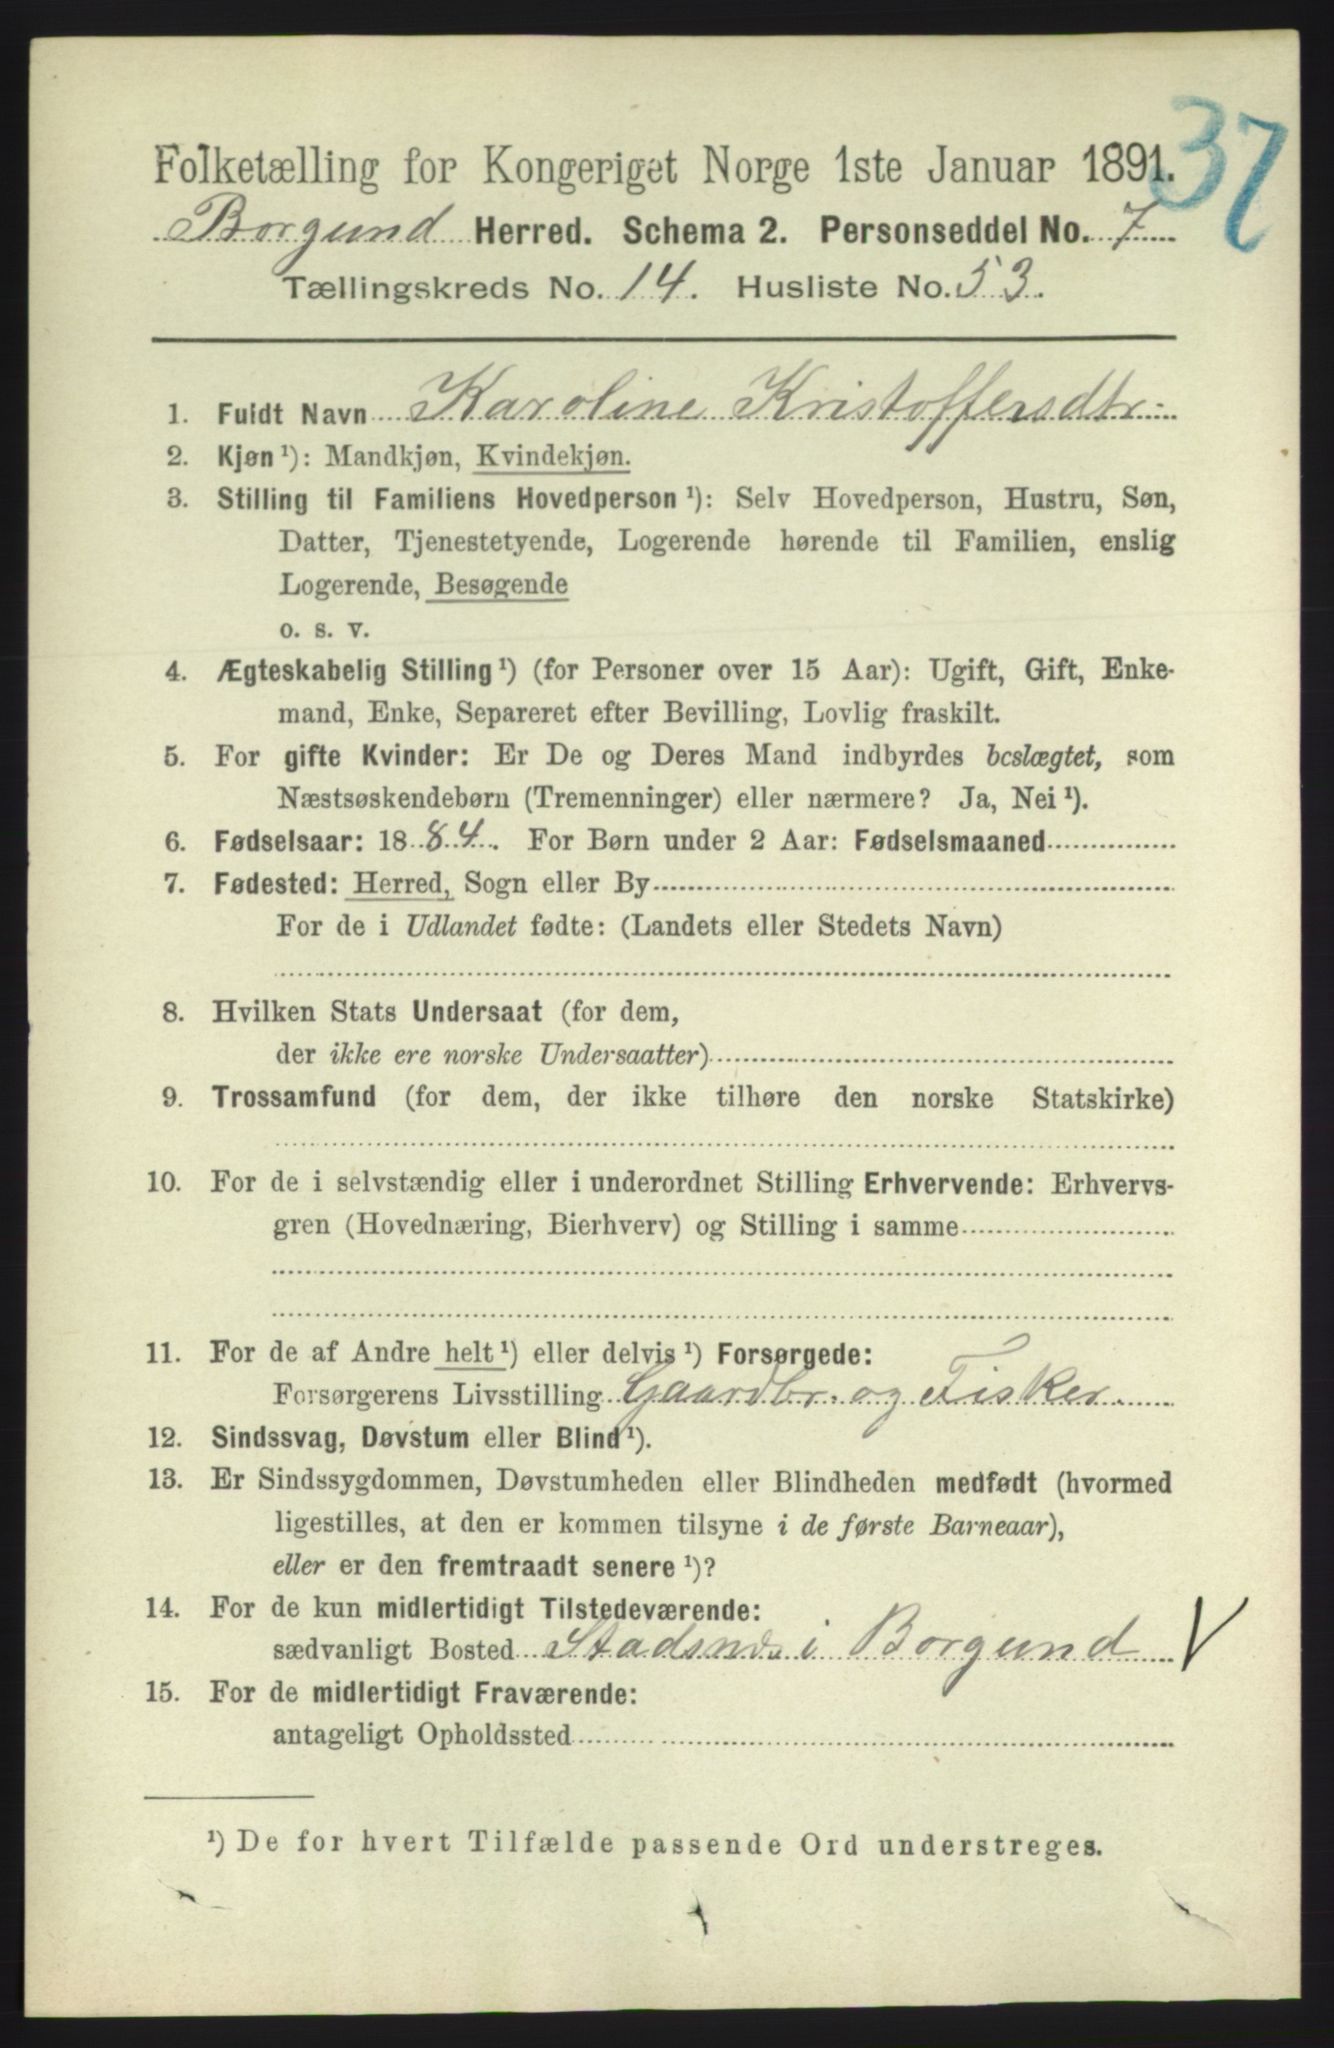 37
Folketælling for Kongeriget Norge 1ste Januar 1891.
Borgund Herred. Schema 2. Personseddel No. 7
Tællingskreds No. 14. Husliste No. 53.
1. Fuldt Navn Karoline Kristoffersdtr.
2. Kjøn ¹): Mandkjøn, Kvindekjøn.
3. Stilling til Familiens Hovedperson ¹): Selv Hovedperson, Hustru, Søn,
Datter, Tjenestetyende, Logerende hørende til Familien, enslig
Logerende, Besøgende
o. s. v.
4. Ægteskabelig Stilling ¹) (for Personer over 15 Aar): Ugift, Gift, Enke-
mand, Enke, Separeret efter Bevilling, Lovlig fraskilt.
5. For gifte Kvinder: Er De og Deres Mand indbyrdes beslægtet, som
Næstsøskendebørn (Tremenninger) eller nærmere? Ja, Nei ¹).
6. Fødselsaar: 1884. For Børn under 2 Aar: Fødselsmaaned
7. Fødested: Herred, Sogn eller By
For de i Udlandet fødte: (Landets eller Stedets Navn)
8. Hvilken Stats Undersaat (for dem,
der ikke ere norske Undersaatter)
9. Trossamfund (for dem, der ikke tilhøre den norske Statskirke)
10. For de i selvstændig eller i underordnet Stilling Erhvervende: Erhvervs-
gren (Hovednæring, Bierhverv) og Stilling i samme
11. For de af Andre helt ¹) eller delvis ¹) Forsørgede:
Forsørgerens Livsstilling Gaardbr. og Fisker.
12. Sindssvag, Døvstum eller Blind ¹).
13. Er Sindssygdommen, Døvstumheden eller Blindheden medfødt (hvormed
ligestilles, at den er kommen tilsyne i de første Barneaar),
eller er den fremtraadt senere ¹)?
14. For de kun midlertidigt Tilstedeværende:
sædvanligt Bosted Stadsnæs i Borgund V
15. For de midlertidigt Fraværende:
antageligt Opholdssted
¹) De for hvert Tilfælde passende Ord understreges.